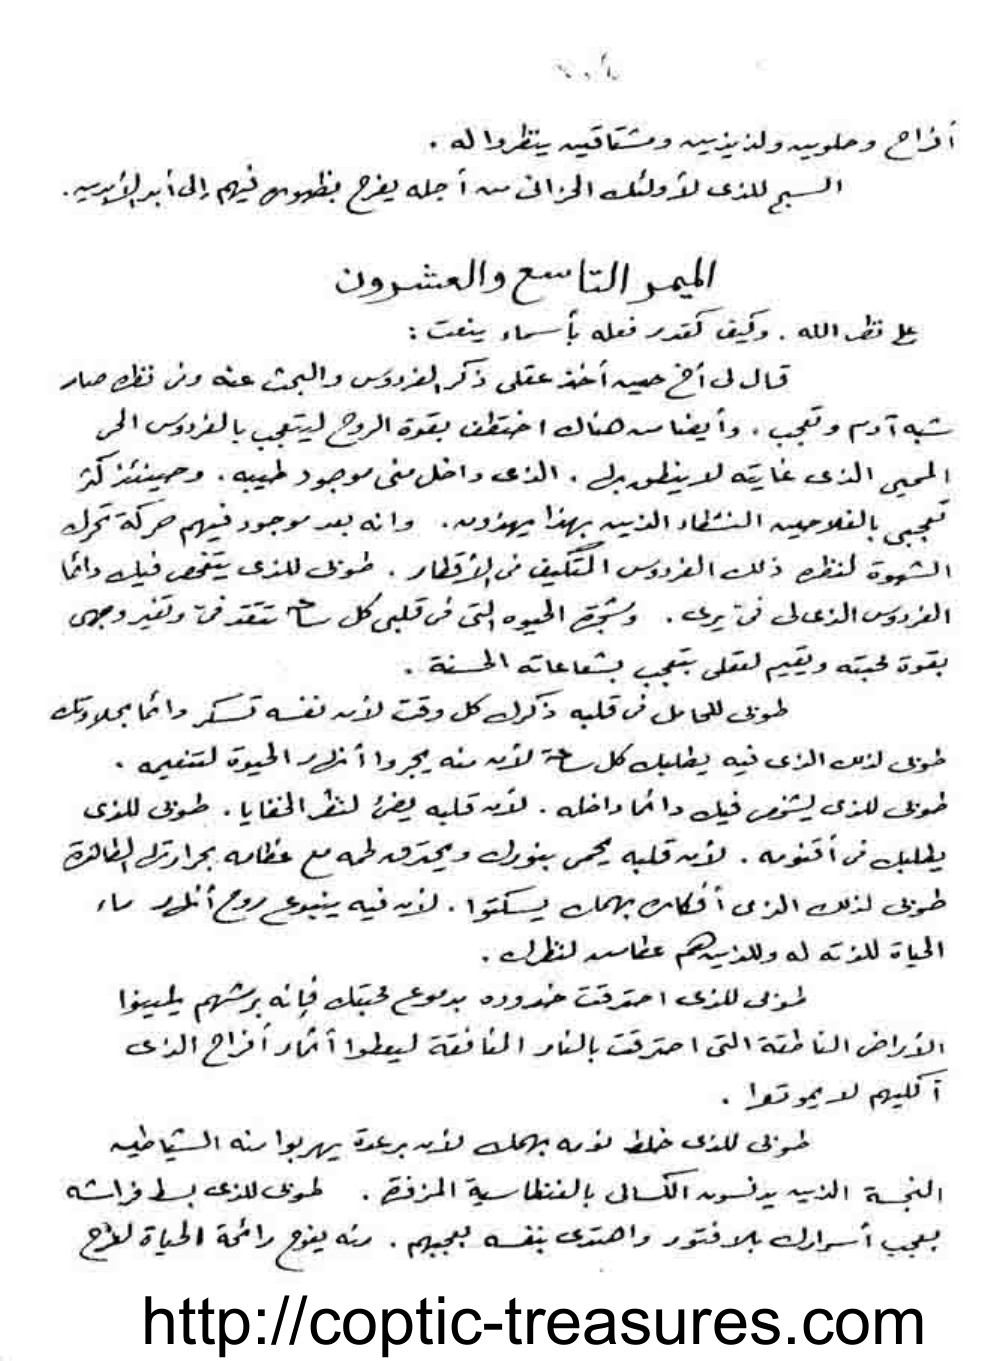 أفراح وحلويين ولذيذين ومشتاقين ينظروا له .
السبح للذى لأولئك الحزانى من أجله يفرح بظهوره فيهم إلى أبد الآبدين .
الميمر التاسع والعشرون
على نظر الله . وكيف كقدر فعله بأسماء ينعت :
قال لى أخ حين أخذ عقلى ذكر الفردوس والبحث عنه ومن نظره صار
شبه آدم وتعجب . وأيضا من هناك اختطف بقوة الروح ليتعجب بالفردوس الحى
المحيى الذى غايته لا ينطق به . الذى داخل منى موجود طيبه . وحينئذ كثر
تعجبى بالفلاحين النشطاء الذين بهذا يهذون . وانه بعد موجود فيهم حركة تحرك
الشهوة لنظره ذلك الفردوس المتكيف من الأقطار . طوبى للذى يتفحص فيك دائما
الفردوس الذى لى فىّ يرى . وشجرة الحيوه التى فى قلبى كل ساعة تتقد فىّ وتغير وجهى
بقوة محبته ويقيم لعقلى بتعجب بشعاعاته الحسنة .
طوبى للحامل فى قلبه ذكرك كل وقت لأن نفسه تسكر دائما بحلاوتك
طوبى لذلك الذى فيه يطلبك كل ساعة لأن منه يجروا أنهار الحيوة لتنعيمه .
طوبى للذى يشخص فيك دائما داخله . لأن قلبه يضئ لنظر الخفايا . طوبى للذى
يطلبك فى أقنومه . لأن قلبه يحمى بنورك ويحترق لحمه مع عظامه بحرارتك الطاهرة
طوبى لذلك الذى أفكاره بهمك يسكتوا . لأن فيه ينبوع روح أنهار ماء
الحياة للذته له وللذين هم عطاس لنظرك .
طوبى للذى احترقت خدوده بدموع محبتك فإنه برشهم يليينوا
الأراضى الناطقة التى احترقت بالنار المنافقة ليعطوا أثمار أفراح الذى
آكليهم لا يموتوا .
طوبى للذى خلط نومه بهمك لأن برعدة يهربوا منه الشياطين
النجسة الذين يدنسون الكسالى بالفنطاسية المزفتة . طوبى للذى بسط فراشه
بعجب أسرارك بلا فتور واهتدى بنفسه بعجبهم . منه يفوح رائحة الحياة لفرح
http://coptic-treasures.com